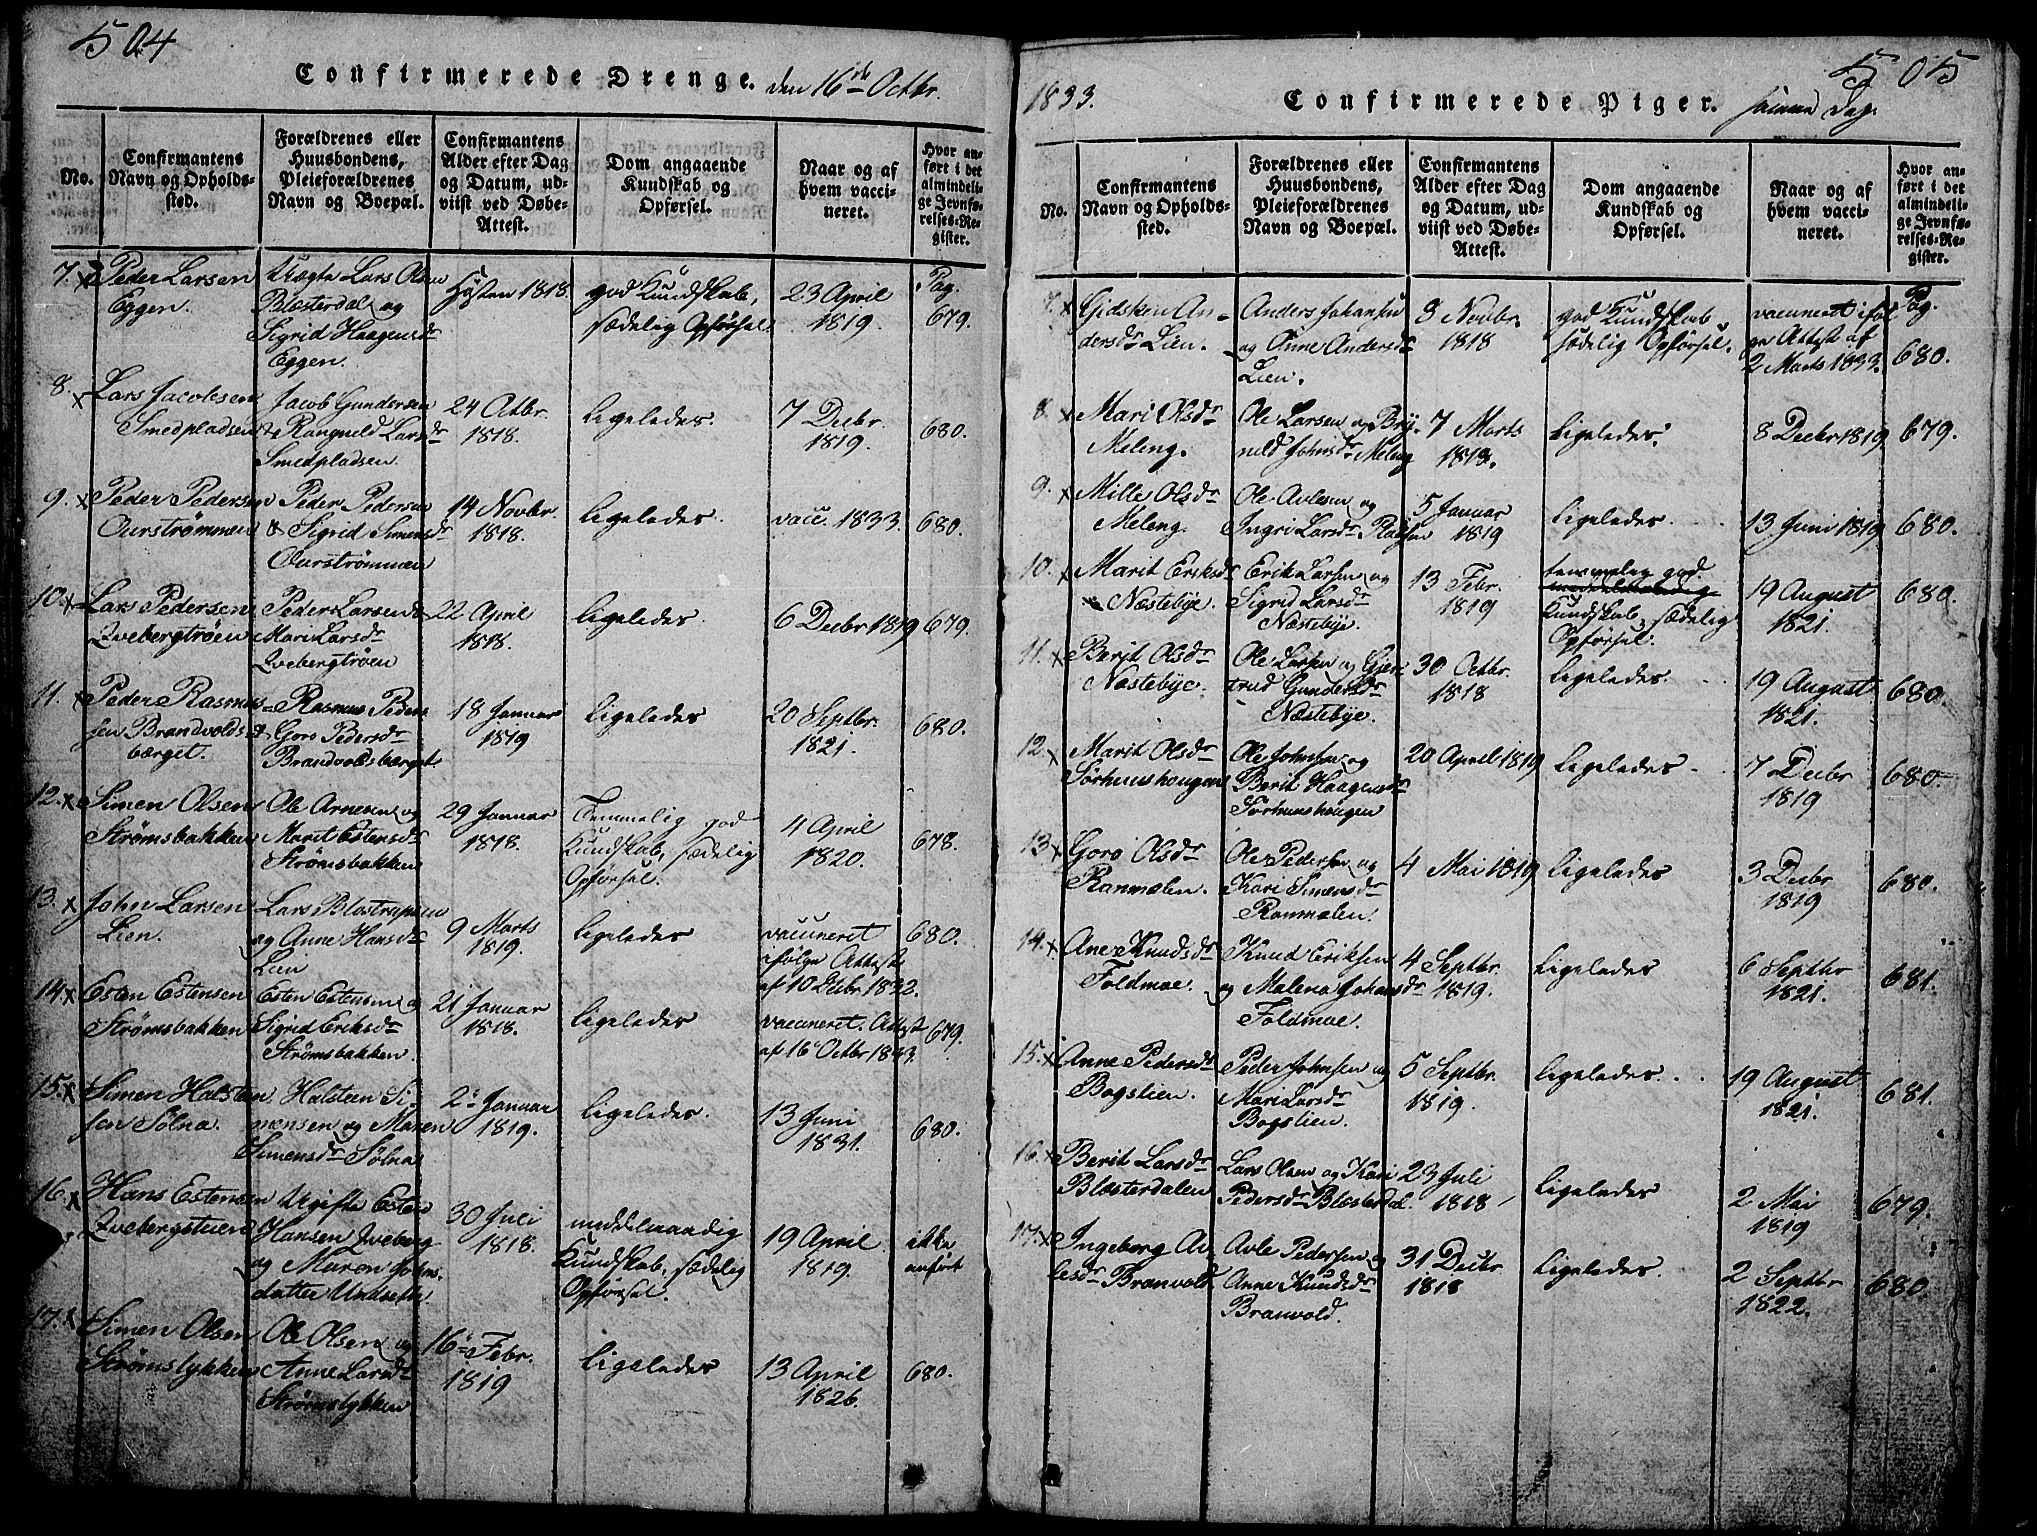 504
Confirmerede Drenge. den 16de Octbr.
No.
Confirmantens
Navn og Opholds-
sted.
Forældrenes eller
Huusbondens,
Pleieforældrenes
Navn og Boepæl.
Confirmantens
Alder efter Dag
og Datum, ud-
viist ved Døbe-
Attest.
Dom angaaende
Kundskab og
Opførsel.
Naar og af
hvem vacci-
neret.
Hvor an-
ført i det
almindeli-
ge Jevnfø-
relses-Re-
gister.
7. x Peder Larsen
Eggen.
Uægte Lars Olsen
Blæsterdal og
Sigrid Haagensdr
Eggen.
Høsten 1818.
god Kundskab,
sædelig Opførsel.
23 April
1819.
Pag.
679.
8. x Lars Jacobsen
Smedpladsen
Jacob Gundersen
& Rangnild Larsdr
Smedpladsen.
24 Octbr.
1818.
ligeledes.
7 Decbr.
1819.
680.
9. x Peder Pedersen
Ourstrømmen
Peder Pedersen
& Sigrid Simensdr
Ourstrømmen
14 Novbr.
1818.
ligeledes.
vacc. 1833.
680.
10. x Lars Pedersen
Qvebergtrøen
Peder Larsen &
Mari Larsdr
Qvebergtrøen
22 April
1818.
ligeledes.
6 Decbr 1819
679.
11. x Peder Rasmus-
sen Brandvolds-
bærget.
Rasmus Peders
& Goro Pedersdr
Brandvoldsbærget
18 Januar
1819
ligeledes
20 Septbr.
1821.
680.
12. x Simen Olsen
Strømsbakken
Ole Arnesen og
Marit Estensdr
Strømsbakken
29 Januar
1818.
Temmelig god
Kundskab, sædelig
Opførsel.
4 April
1820.
678.
13. x John Larsen
Lien.
Lars
og Anne Hansdr
Lien
9 Marts
1819.
ligeledes
vaccineret
ifølge Attest
af 10 Decbr 1832.
680.
14. x Esten Estensen
Strømsbakken
Esten Estensen og
Sigrid Eriksdr
Strømsbakken.
21 Januar
1818.
ligeledes
vaccineret. Attest
af 16 Octbr 1833.
679.
15. x Simen Halsten
sen Sølna.
Halsteen Si-
mensen og Maren
Simensdr Sølna
2 Januar
1819.
ligeledes.
13 Juni
1831.
680.
16. x Hans Estensen
Qvebergsteien
Ugifte Esten
Hansen Qveberg
og Maren Johns-
datter Undseth.
30 Juli
1818.
middelmaadig
Kundskab, sædelig
Opførsel.
19 April
1819.
ikke
anført
17. x Simen Olsen
Strømslykken
Ole Olsen og
Anne Larsdr
Strømslykken
16 Febr.
1819
ligeledes
13 April
1826.
680.
505
1833. Confirmerede Piger. samme Dag.
No.
Confirmantens
Navn og Opholds-
sted.
Forældrenes eller
Huusbondens,
Pleieforældrenes
Navn og Boepæl.
Confirmantens
Alder efter Dag
og Datum, ud-
viist ved Døbe-
Attest.
Dom angaaende
Kundskab og
Opførsel.
Naar og af
hvem vacci-
neret.
Hvor an-
ført i det
almindeli-
ge Jevnfø-
relses-Re-
gister.
7. x Gidsken An-
dersdr Lien.
Anders Johansen
og Anne Andersdr
Lien.
8 Novbr.
1818
god Kundskab
sædelig Opførsel.
vaccineret iføl
ge Attest af
2 Marts 1833.
Pag.
680.
8. x Mari Olsdr
Meleng.
Ole Larsen og Bry-
nild Johnsdr Meleng
7 Marts
1818.
ligeledes.
8 Decbr 1819
679.
9. x Mille Olsdr
Meleng.
Ole Avlesen og
Ingri Larsdr
5 Januar
1819
ligeledes.
13 Juni 1819
680.
10. x Marit Eriksdr
Næstebye.
Erik Larsen og
Sigrid Larsdr
Næstebye.
13 Febr.
1819
temmelig god
middelmaadig
Kundskab, sædelig
Opførsel.
19 August
1821.
680.
11. x Berit Olsdr
Næstebye.
Ole Larsen og Gjer-
trud Gundersdr
Næstebye.
30 Octbr.
1818
ligeledes.
19 August
1821.
680.
12. x Marit Olsdr
Sørhuushougen
Ole Johnsen og
Berit Haagensdr
Sørhuushougen
20 April 1819
ligeledes
7 Decbr
1819
680.
13. x Goro Olsdr
Ranmælen.
Ole Pedersen og
Kari Simensdr
Ranmælen.
4 Mai 1819
ligeledes
3 Decbr
1819
680.
14. x Ane Knudsdr
Foldmoe.
Knud Eriksen
og Malena Johansdr
Foldmoe.
4 Septbr.
1819.
ligeledes
6 Septbr
1821.
681.
15. x Anne Pedersdr
Bogslien.
Peder Johnsen og
Mari Larsdr
Bogslien.
5 Septbr.
1819.
ligeledes.
19 August
1821.
681.
16. x Berit Larsdr
Blæsterdalen
Lars Olsen og Kari
Pedersdr Blæsterdal.
23 Juli
1818
ligeledes
2 Mai
1819
679.
17. x Ingeborg Av-
lesdr Branvold.
Avle Pedersen og
Anne Knudsdr
Branvold.
31 Decbr
1818
ligeledes.
2 Septbr
1822.
680.